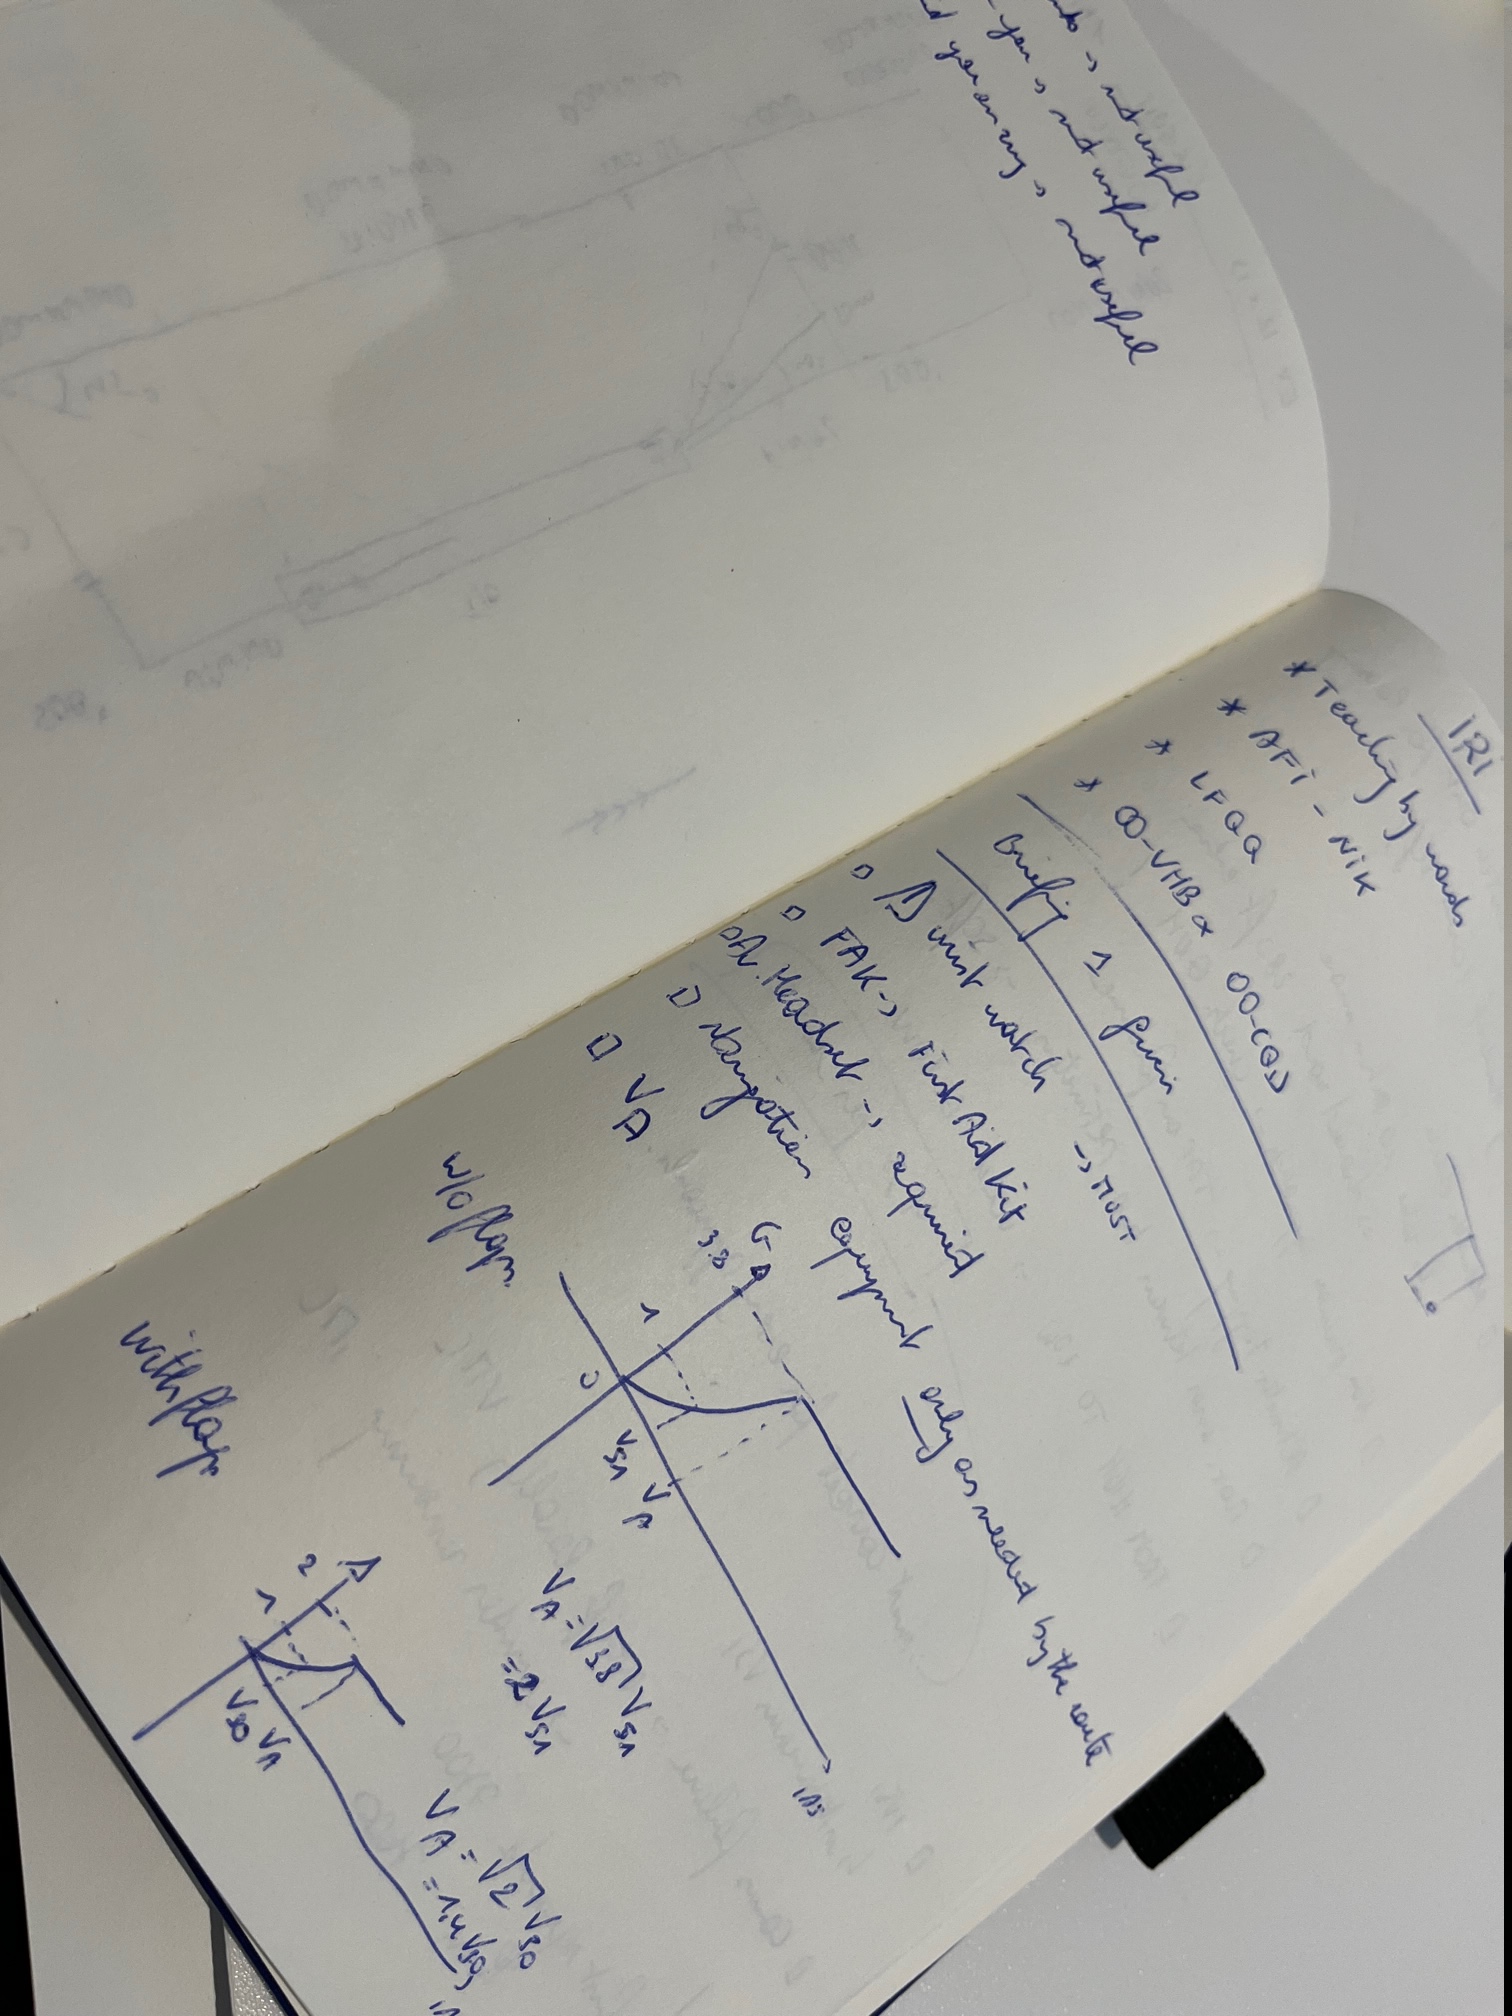 not useful
you → not useful
not useful
IRI
* Teaching by words
* AFI - NIK
* LFQQ
* OO-VHB & OO-CQD
Briefing 1
wrist watch → MUST
FAK → First Aid Kit
Headset → required
Navigation equipment only as needed by the route
VA
w/o flaps
G
3.8
1
0
VS1 VA
IAS
VA = √3.8 VS1
= 2 VS1
with flaps
2
1
VS0 VA
VA = √2 VS0
= 1,4 VS0